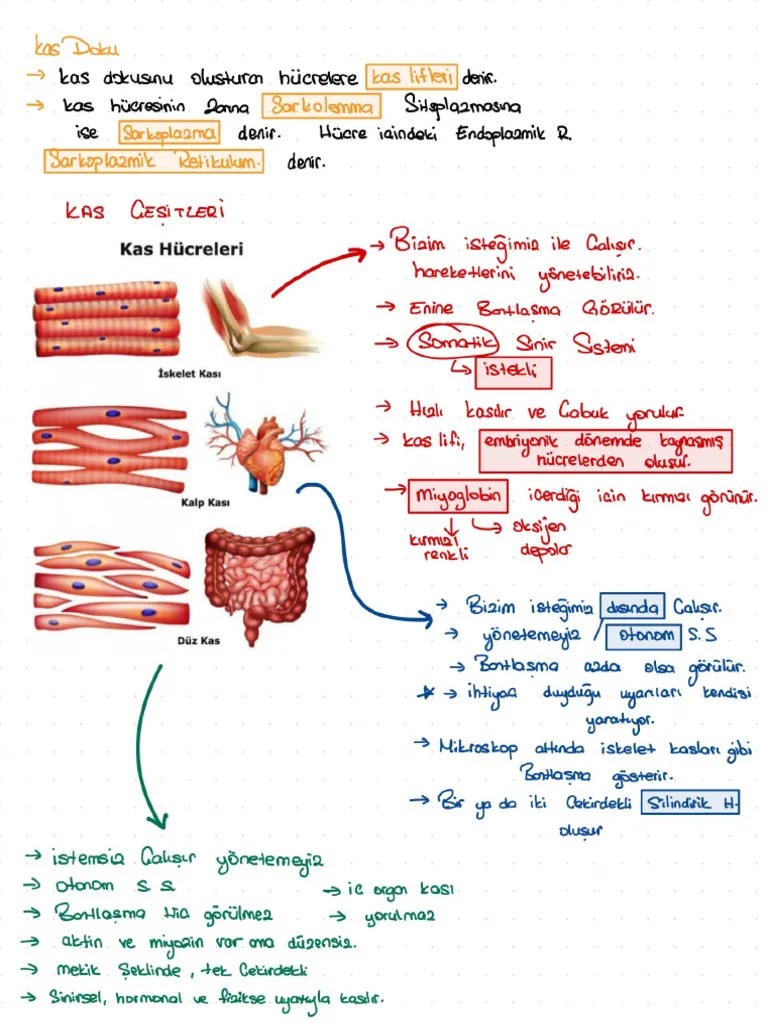 Kas Doku
→ Kas dokusunu oluşturan hücrelere kas lifleri denir.
→ Kas hücresinin zarına Sarkolemma Sitoplazmasına
ise Sarkoplazma denir. Hücre içindeki Endoplazmik R.
Sarkoplazmik Retikulum. denir.
KAS ÇEŞİTLERİ
Kas Hücreleri
İskelet Kası
Kalp Kası
Düz Kas
→ Bizim isteğimiz ile Çalışır.
hareketlerini yönetebiliriz.
→ Enine Bantlaşma Görülür.
→ Somatik Sinir Sistemi
↳ istekli
→ Hızlı kasılır ve Çabuk yorulur
→ kas lifi, embriyonik dönemde kaynaşmış
hücrelerden oluşur.
→ miyoglobin içerdiği için kırmızı görünür.
kırmızı renkli
↳ oksijen depolar
→ Bizim isteğimiz dışında Çalışır.
→ yönetemeyiz / otonom S.S
→ Bantlaşma azda olsa görülür.
★ → ihtiyaç duyduğu uyarıları kendisi
yaratıyor.
→ Mikroskop altında iskelet kasları gibi
Bantlaşma gösterir.
→ Bir ya da iki Çekirdekli Silindirik H.
oluşur
→ istemsiz Çalışır yönetemeyiz
→ otonom S. S.
→ iç organ kası
→ Bantlaşma Hiç görülmez
→ yorulmaz
→ aktin ve miyozin var ama düzensiz.
→ mekik Şeklinde, tek Çekirdekli
→ Sinirsel, hormonal ve fizikse uyarıyla kasılır.